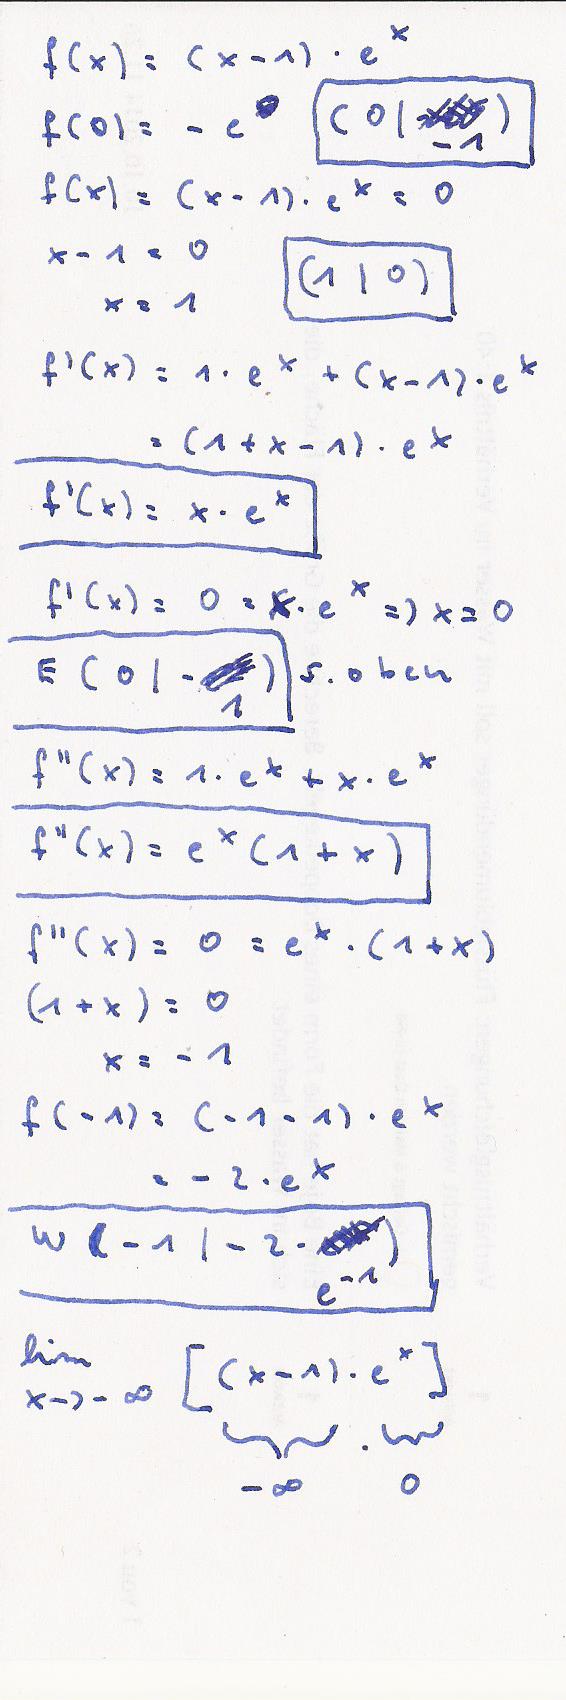 f(x) = (x-1) · e^x
f(0) = - e ( 0 | -1 )
f(x) = (x-1) · e^x = 0
x - 1 = 0 (1 | 0)
x = 1
f'(x) = 1 · e^x + (x-1) · e^x
= (1+x-1) · e^x
f'(x) = x · e^x
f'(x) = 0 = x · e^x => x = 0
E ( 0 | -1 ) s. oben
f''(x) = 1 · e^x + x · e^x
f''(x) = e^x (1 + x)
f''(x) = 0 = e^x · (1+x)
(1+x) = 0
x = - 1
f(-1) = (-1-1) · e^x
= - 2 · e^x
W ( -1 | -2 · e^-1 )
lim x->-∞ [(x-1) · e^x]
-∞ · 0